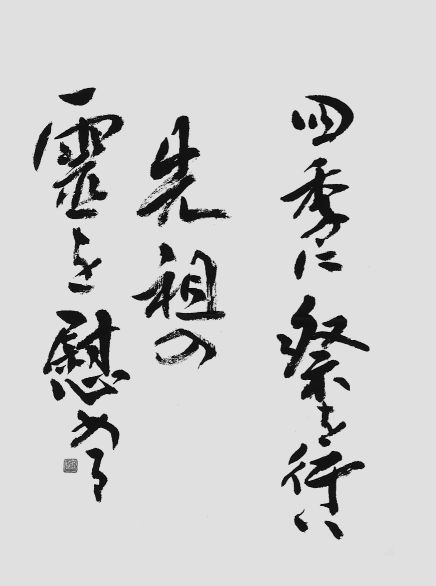 四季に祭を行い
先祖の
霊を慰める